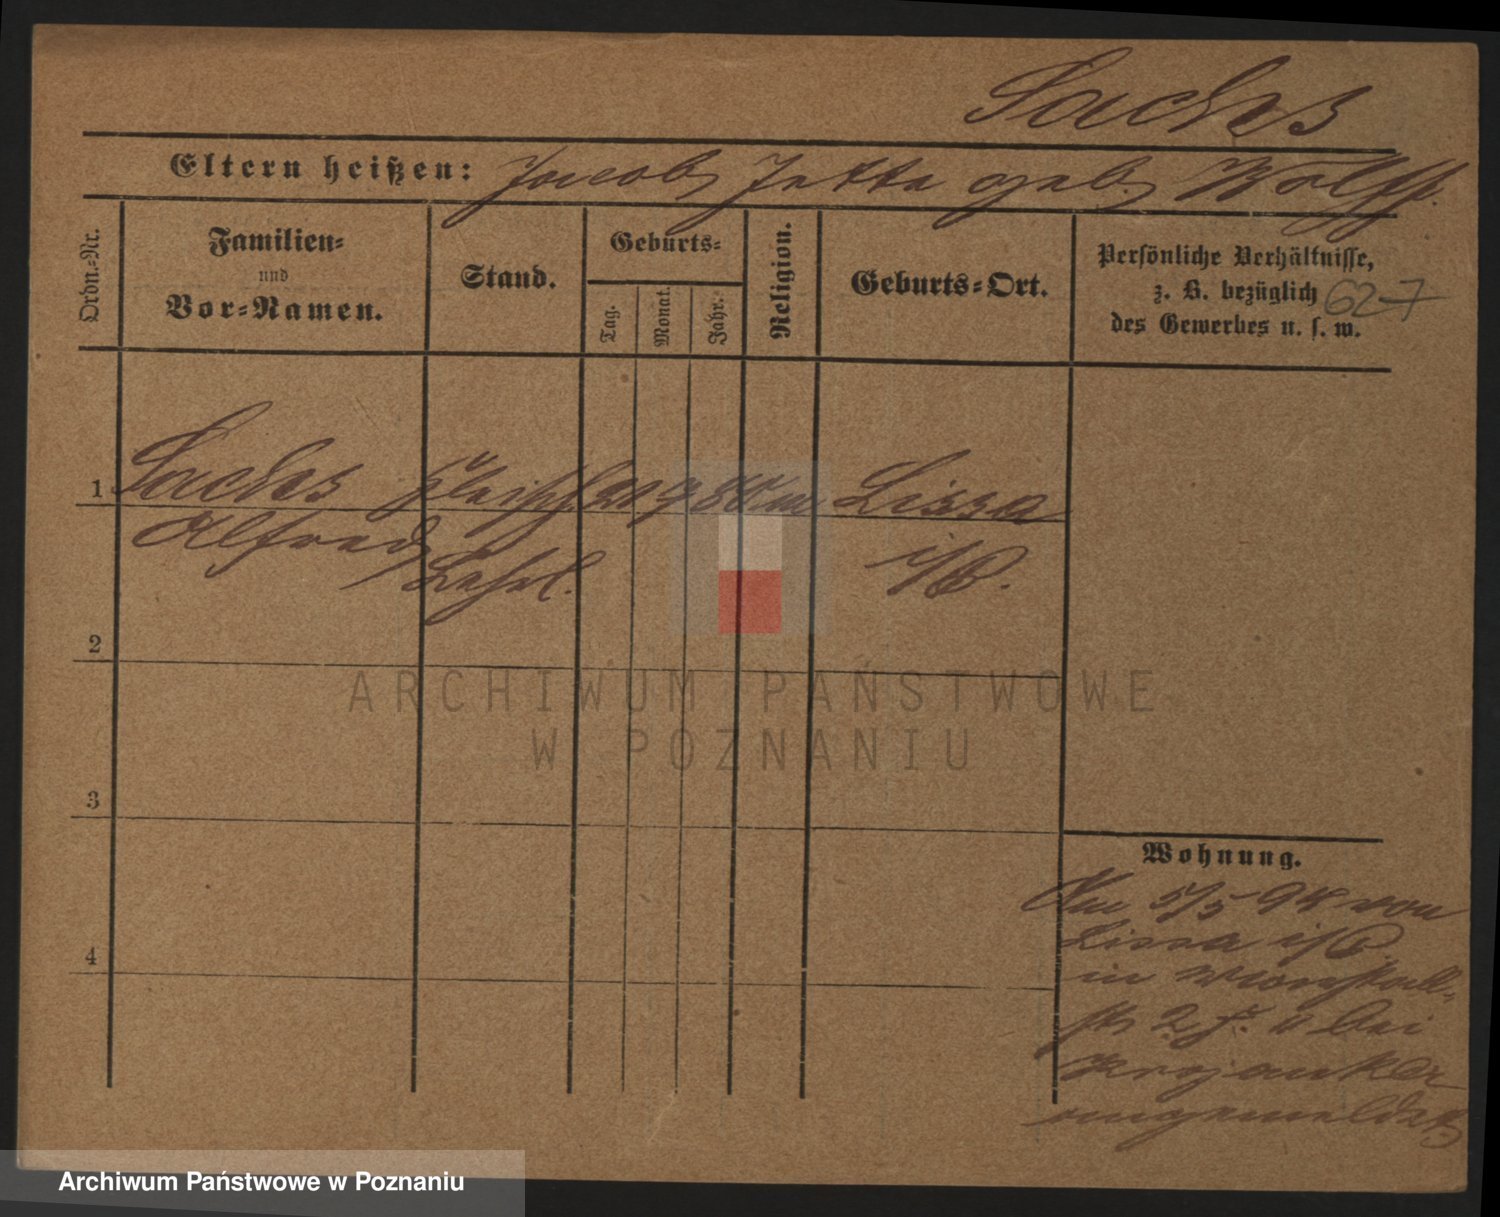 Sachs
Eltern heißen: Jacob, Jette geb. Wolff.
Ordn.-Nr.
Familien-
und
Vor-Namen.
Stand.
Geburts-
Tag.
Monat.
Jahr.
Religion.
Geburts-Ort.
Persönliche Verhältnisse,
z. B. bezüglich
des Gewerbes u. s. w.
627
1 Sachs 21 9 Lissa
Alfred Lehrl. i/P.
2
3
4
Wohnung.
5/5 94 von
Lissa i/P.
in
2 bei
Krojanker
angemeldet
ARCHIWUM PAŃSTWOWE
W POZNANIU
Archiwum Państwowe w Poznaniu